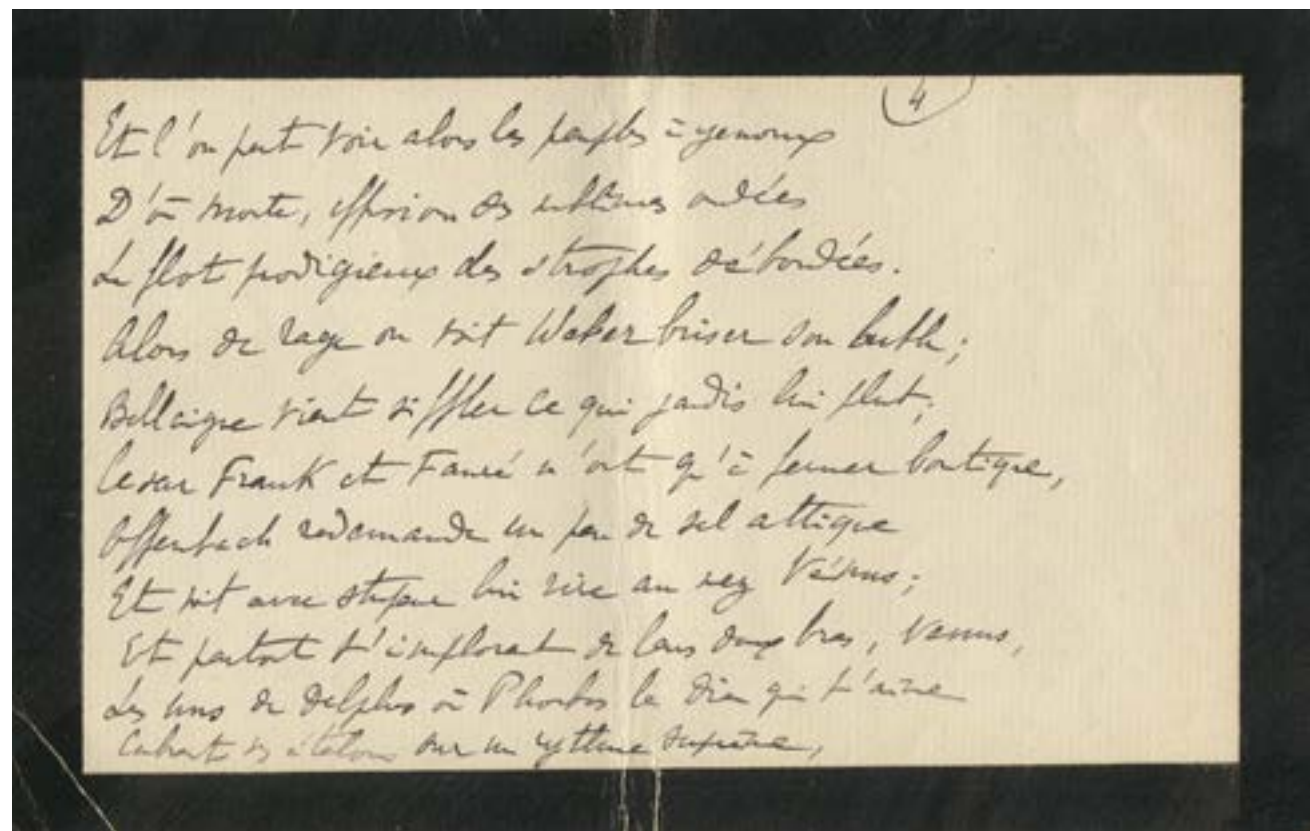 4
Et l'on peut voir alors les peuples à genoux
D'où monte, effusion des sublimes ondées
Le flot prodigieux des strophes débordées.
Alors de rage on vit Weber briser son luth ;
Bellaigue vient siffler ce qui jadis lui plut,
Cesar Frank et Fauré n'ont qu'à fermer boutique,
Offenbach redemande un peu de sel attique
Et vit avec stupeur lui rire au nez Vénus ;
Et partout t'implorant de leurs doux bras, venus,
Les uns de Delphes où Phoebos le Dieu qui t'aime
sur un rythme suprême,